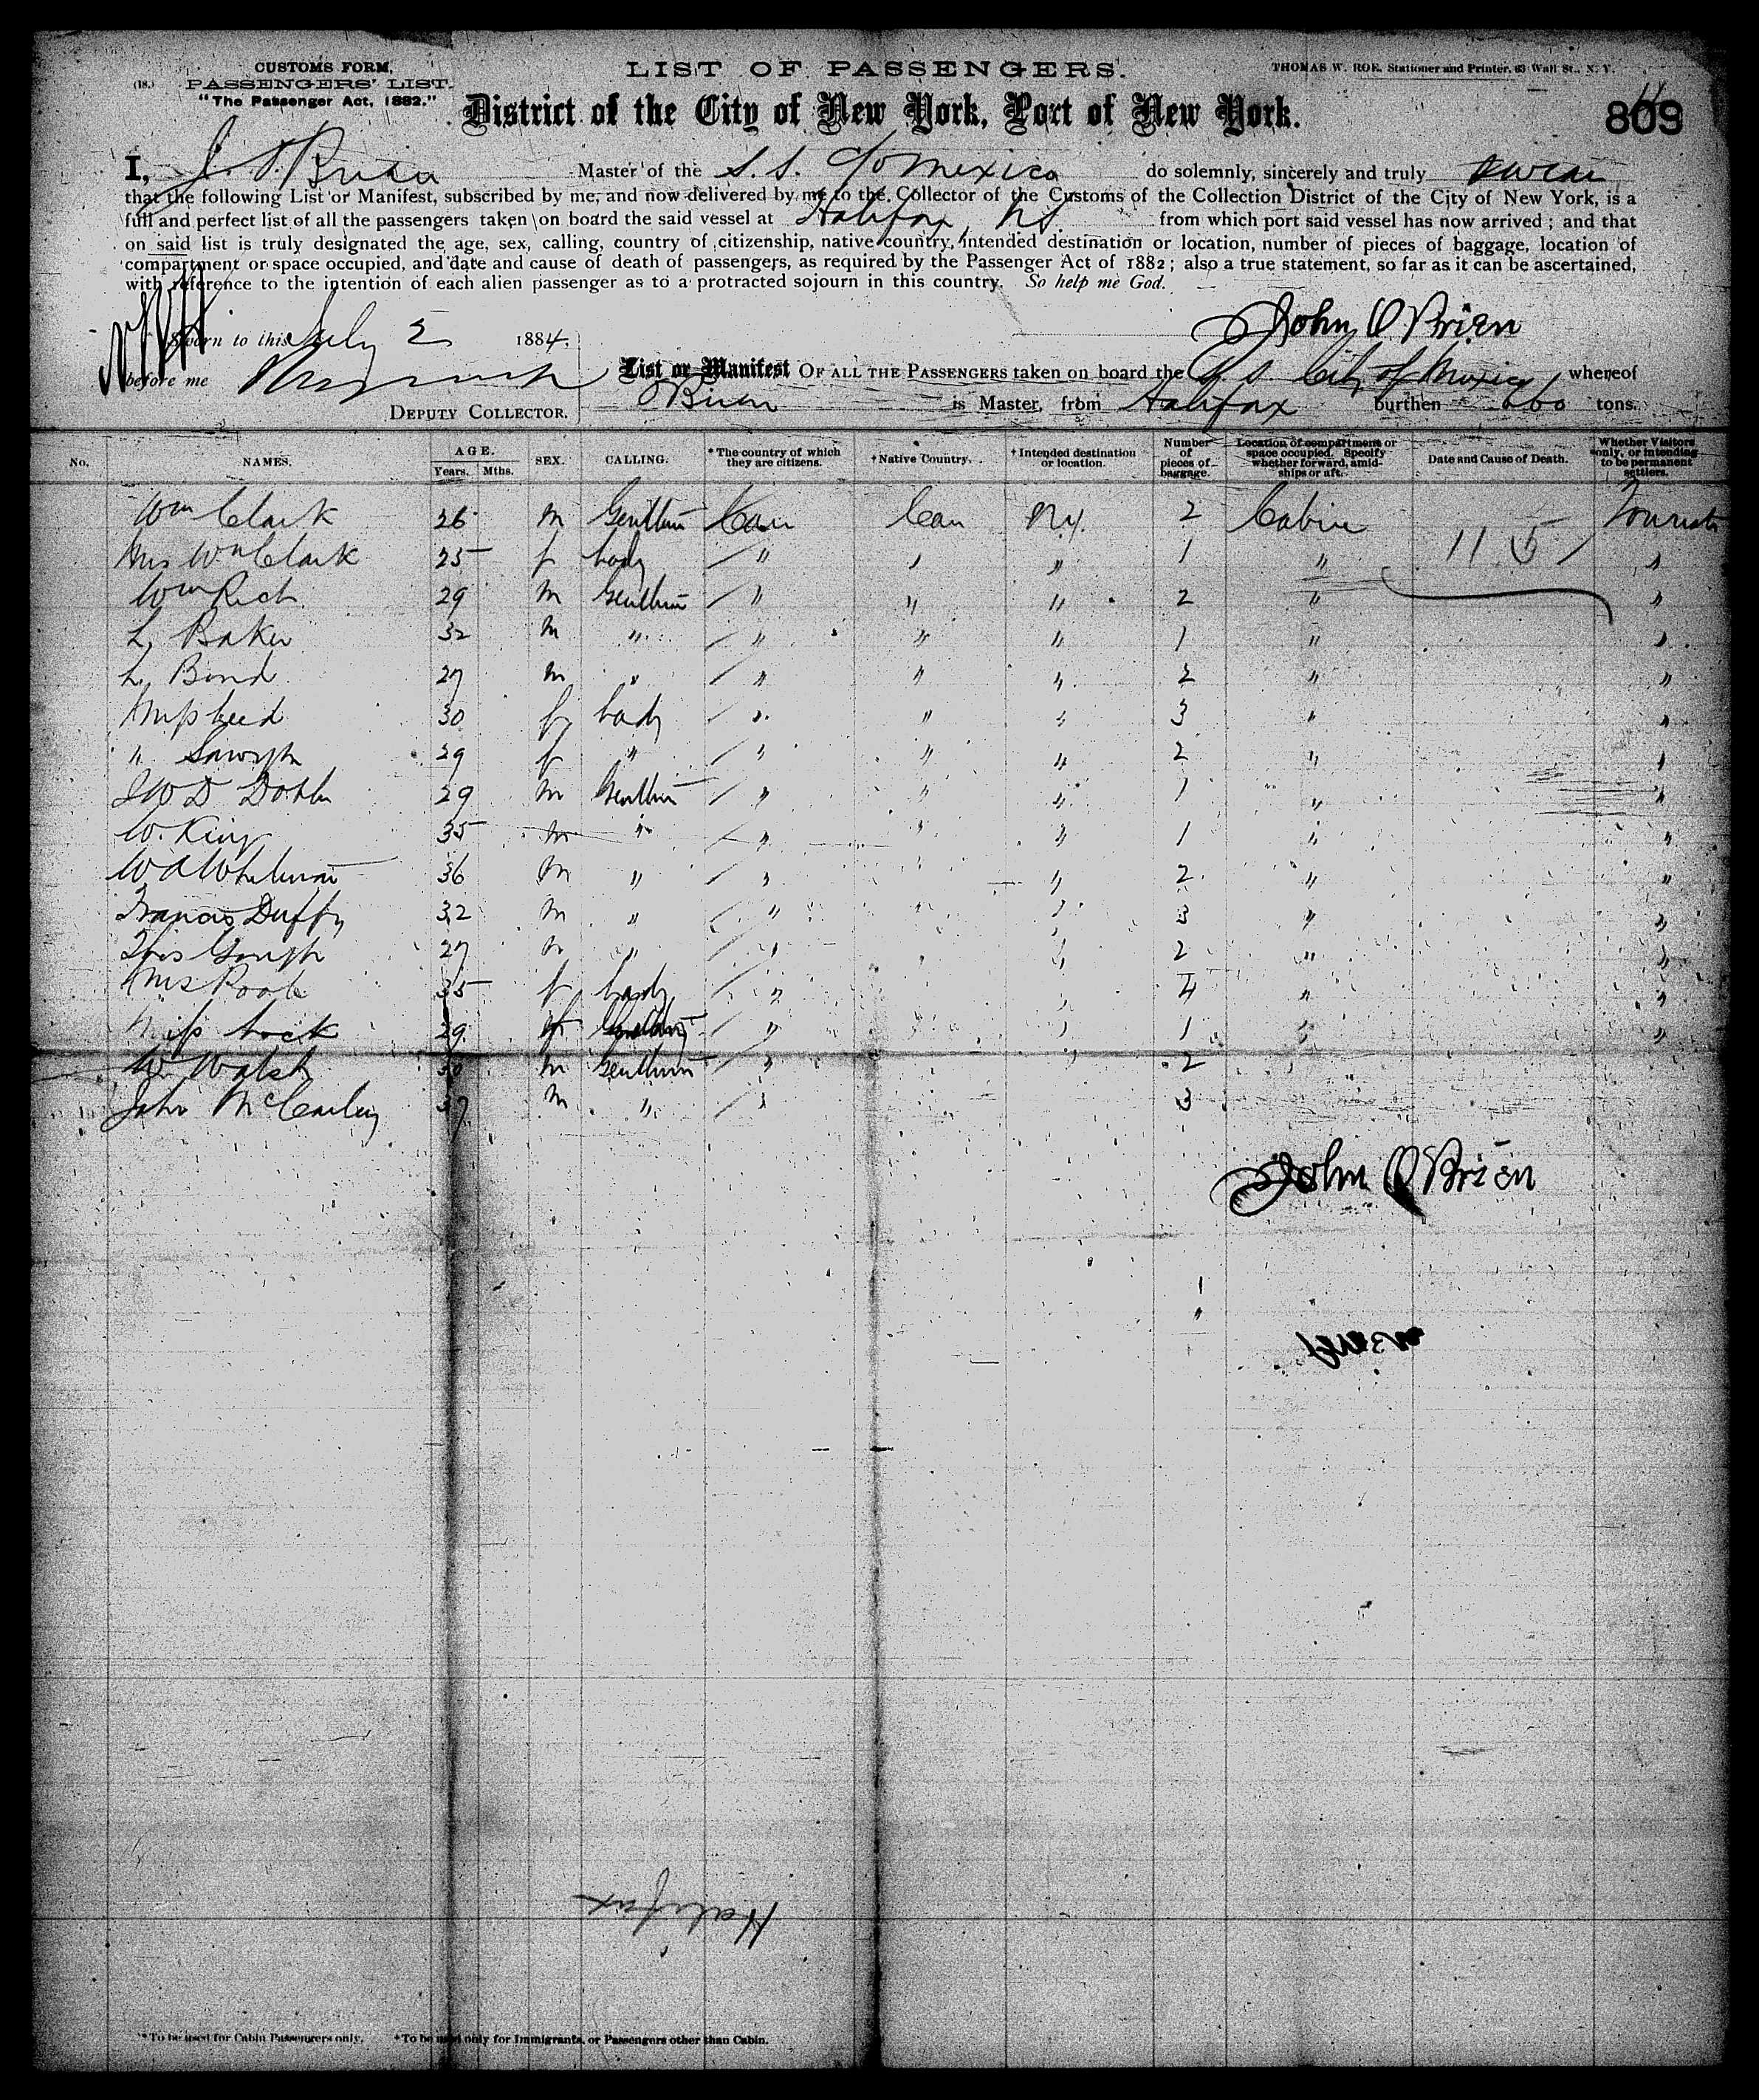 CUSTOMS FORM,
(18.) PASSENGERS' LIST.
"The Passenger Act, 1882."
LIST OF PASSENGERS.
THOMAS W. ROE, Stationer and Printer, 63 Wall St., N. Y.
District of the City of New York, Port of New York.
809
I, J. O'Brien Master of the S.S. C/o Mexico do solemnly, sincerely and truly swear
that the following List or Manifest, subscribed by me, and now delivered by me to the Collector of the Customs of the Collection District of the City of New York, is a
full and perfect list of all the passengers taken on board the said vessel at Halifax N.S. from which port said vessel has now arrived; and that
on said list is truly designated the age, sex, calling, country of citizenship, native country, intended destination or location, number of pieces of baggage, location of
compartment or space occupied, and date and cause of death of passengers, as required by the Passenger Act of 1882; also a true statement, so far as it can be ascertained,
with reference to the intention of each alien passenger as to a protracted sojourn in this country. So help me God.
John O'Brien
Sworn to this July 2 1884.
before me
DEPUTY COLLECTOR.
List or Manifest OF ALL THE PASSENGERS taken on board the S.S. City of Mexico whereof
O'Brien is Master, from Halifax burthen tons.
No. NAMES. AGE. Years. Mths. SEX. CALLING. *The country of which they are citizens. †Native Country. †Intended destination or location. Number of pieces of baggage. Location of compartment or space occupied. Specify whether forward, amidships or aft. Date and Cause of Death. Whether Visitors only, or intending to be permanent settlers.
Wm Clark 26 m Gentlm Can Can N.Y. 2 Cabin Tourists
Mrs Wm Clark 25 f Lady " " " 1 " "
11 5
Wm Rich 29 m Gentlm " " " 2 " "
L. Baker 32 m " " " " 1 " "
L. Bond 27 m " " " " 2 " "
Miss Leed 30 f Lady " " " 3 " "
" 29 f " " " " 2 " "
29 m Gentlm " " " 1 " "
W. King 35 m " " " " 1 " "
W A Whitman 36 m " " " 2 " "
Francis Duffy 32 m " " " 3 " "
Thos Gough 27 m " " " 2 " "
Mrs Poole 35 f Lady " " 4 " "
Miss Lock 29 f " " 1 " "
Walsh 30 m Gentlm " 2
John McCarley 37 m " " 3
John O'Brien
Halifax
*To be used for Cabin Passengers only. †To be used only for Immigrants, or Passengers other than Cabin.